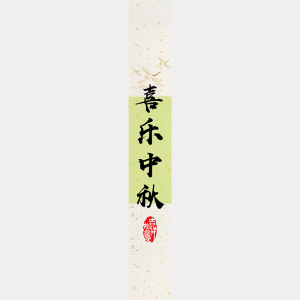 喜乐中秋